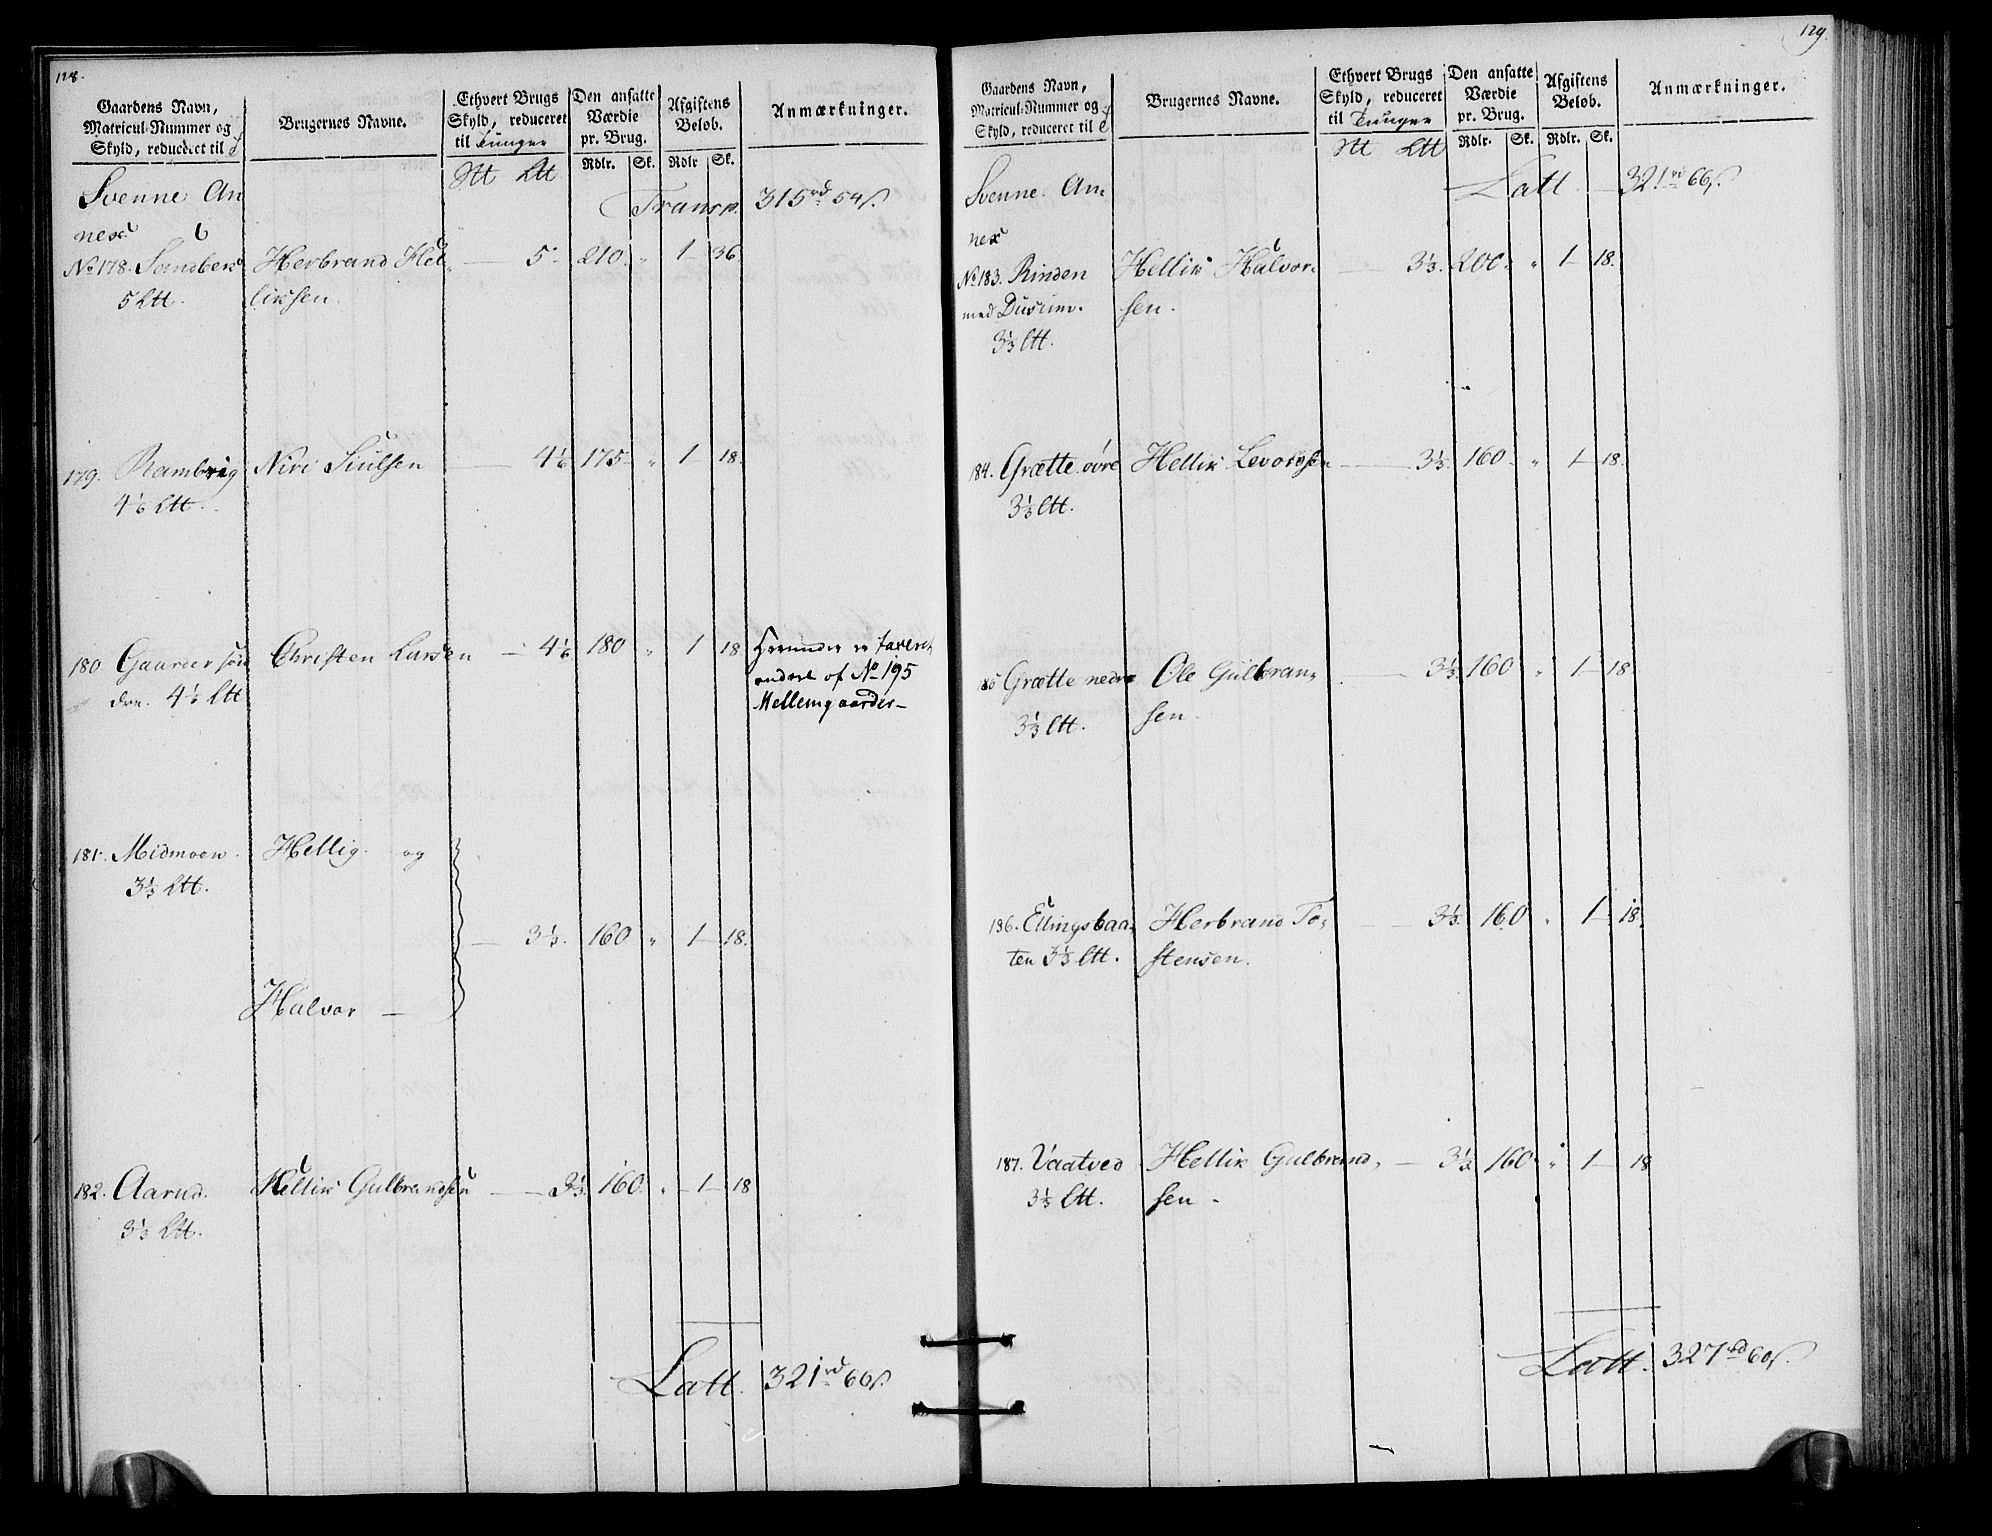 128.
Gaardens Navn,
Matricul-Nummer og
Skyld, reduceret til
Brugernes Navne.
Ethvert Brugs
Skyld, reduceret
til Tunger
Den ansatte
Værdie
pr. Brug.
Rdlr. Sk.
Afgiftens
Beløb.
Rdlr Sk.
Anmærkninger.
Svenne An
nex
Transp. 315 rd 54 s.
No 178. Sandber
5 Ltt.
Herbrand Hel-
liksen.
5 210. " 1 36
179. Rambrig
4 1/6 Ltt.
Niri Siulsen
4 1/6 175 " 1 18.
180 Gaarder søn
dre. 4 1/6 Ltt
Christen Larsen
4 1/6 180 " 1 18
Herunder er taxeret
endeel af No 195
Mellemgaarder
181. Midmoen
3 1/3 Ltt.
Hellig og
Halvor
3 1/3. 160 " 1 18.
182. Aarud.
3 1/3 Ltt.
Hellik Gulbrandsen
3 1/3. 160. " 1 18
Latt. 321 rd 66 s.
129.
Gaardens Navn,
Matricul-Nummer og
Skyld, reduceret til
Brugernes Navne.
Ethvert Brugs
Skyld, reduceret
til Tunger
Den ansatte
Værdie
pr. Brug.
Rdlr. Sk.
Afgiftens
Beløb.
Rdlr. Sk.
Anmærkninger.
Svenne An-
nex
Latt 321 rd 66 s.
No 183. Rinden
3 1/3 Ltt.
Hellik Halvor-
sen.
3 1/3. 200. " 1 18.
184. Grætte øvre
3 1/3 Ltt.
Hellik Levorsen
3 1/3. 160 " 1 18.
185 Grætte nedre
3 1/3 Ltt.
Ole Gulbran-
sen.
3 1/3. 160 " 1 18.
186. Ellingsbaa-
ten 3 1/3 Ltt.
Herbrand To-
stensen.
3 1/3. 160 " 1 18.
187. Vaatved
3 1/3 Ltt.
Hellik Gulbrand-
sen
3 1/3 160 " 1 18
Latt. 327 rd 60 s.